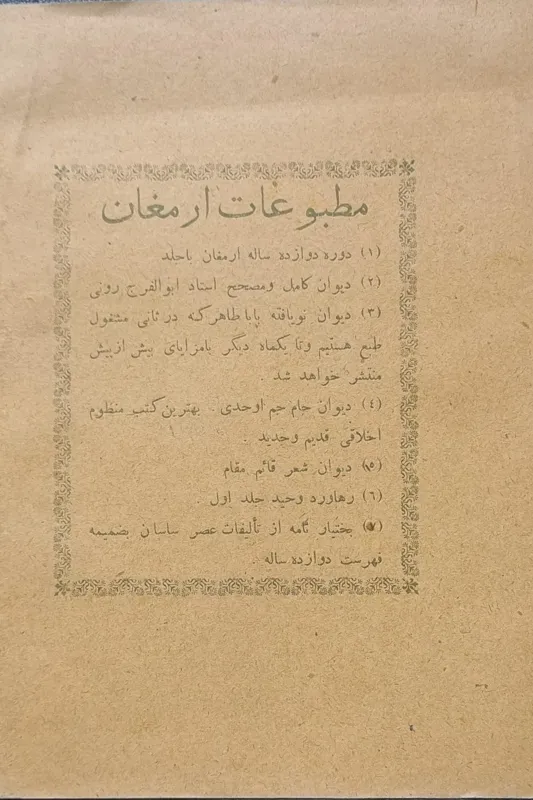 مطبوعات ارمغان
(۱) دوره دوازده ساله ارمغان باجلد
(۲) دیوان کامل ومصحح استاد ابوالفرج رونی
(۳) دیوان نویافته باباطاهرکه درثانی مشغول
طبع هستیم وتا یکماه دیگر بامزایای بیش ازپیش
منتشر خواهد شد .
(٤) دیوان جام جم اوحدی . بهترین کتب منظوم
اخلاقی قدیم وجدید .
(۵) دیوان شعر قائم مقام
(٦) رهاورد وحید جلد اول .
(۷) بختیار نامه از تألیفات عصر ساسان بضمیمه
فهرست دوازده ساله .